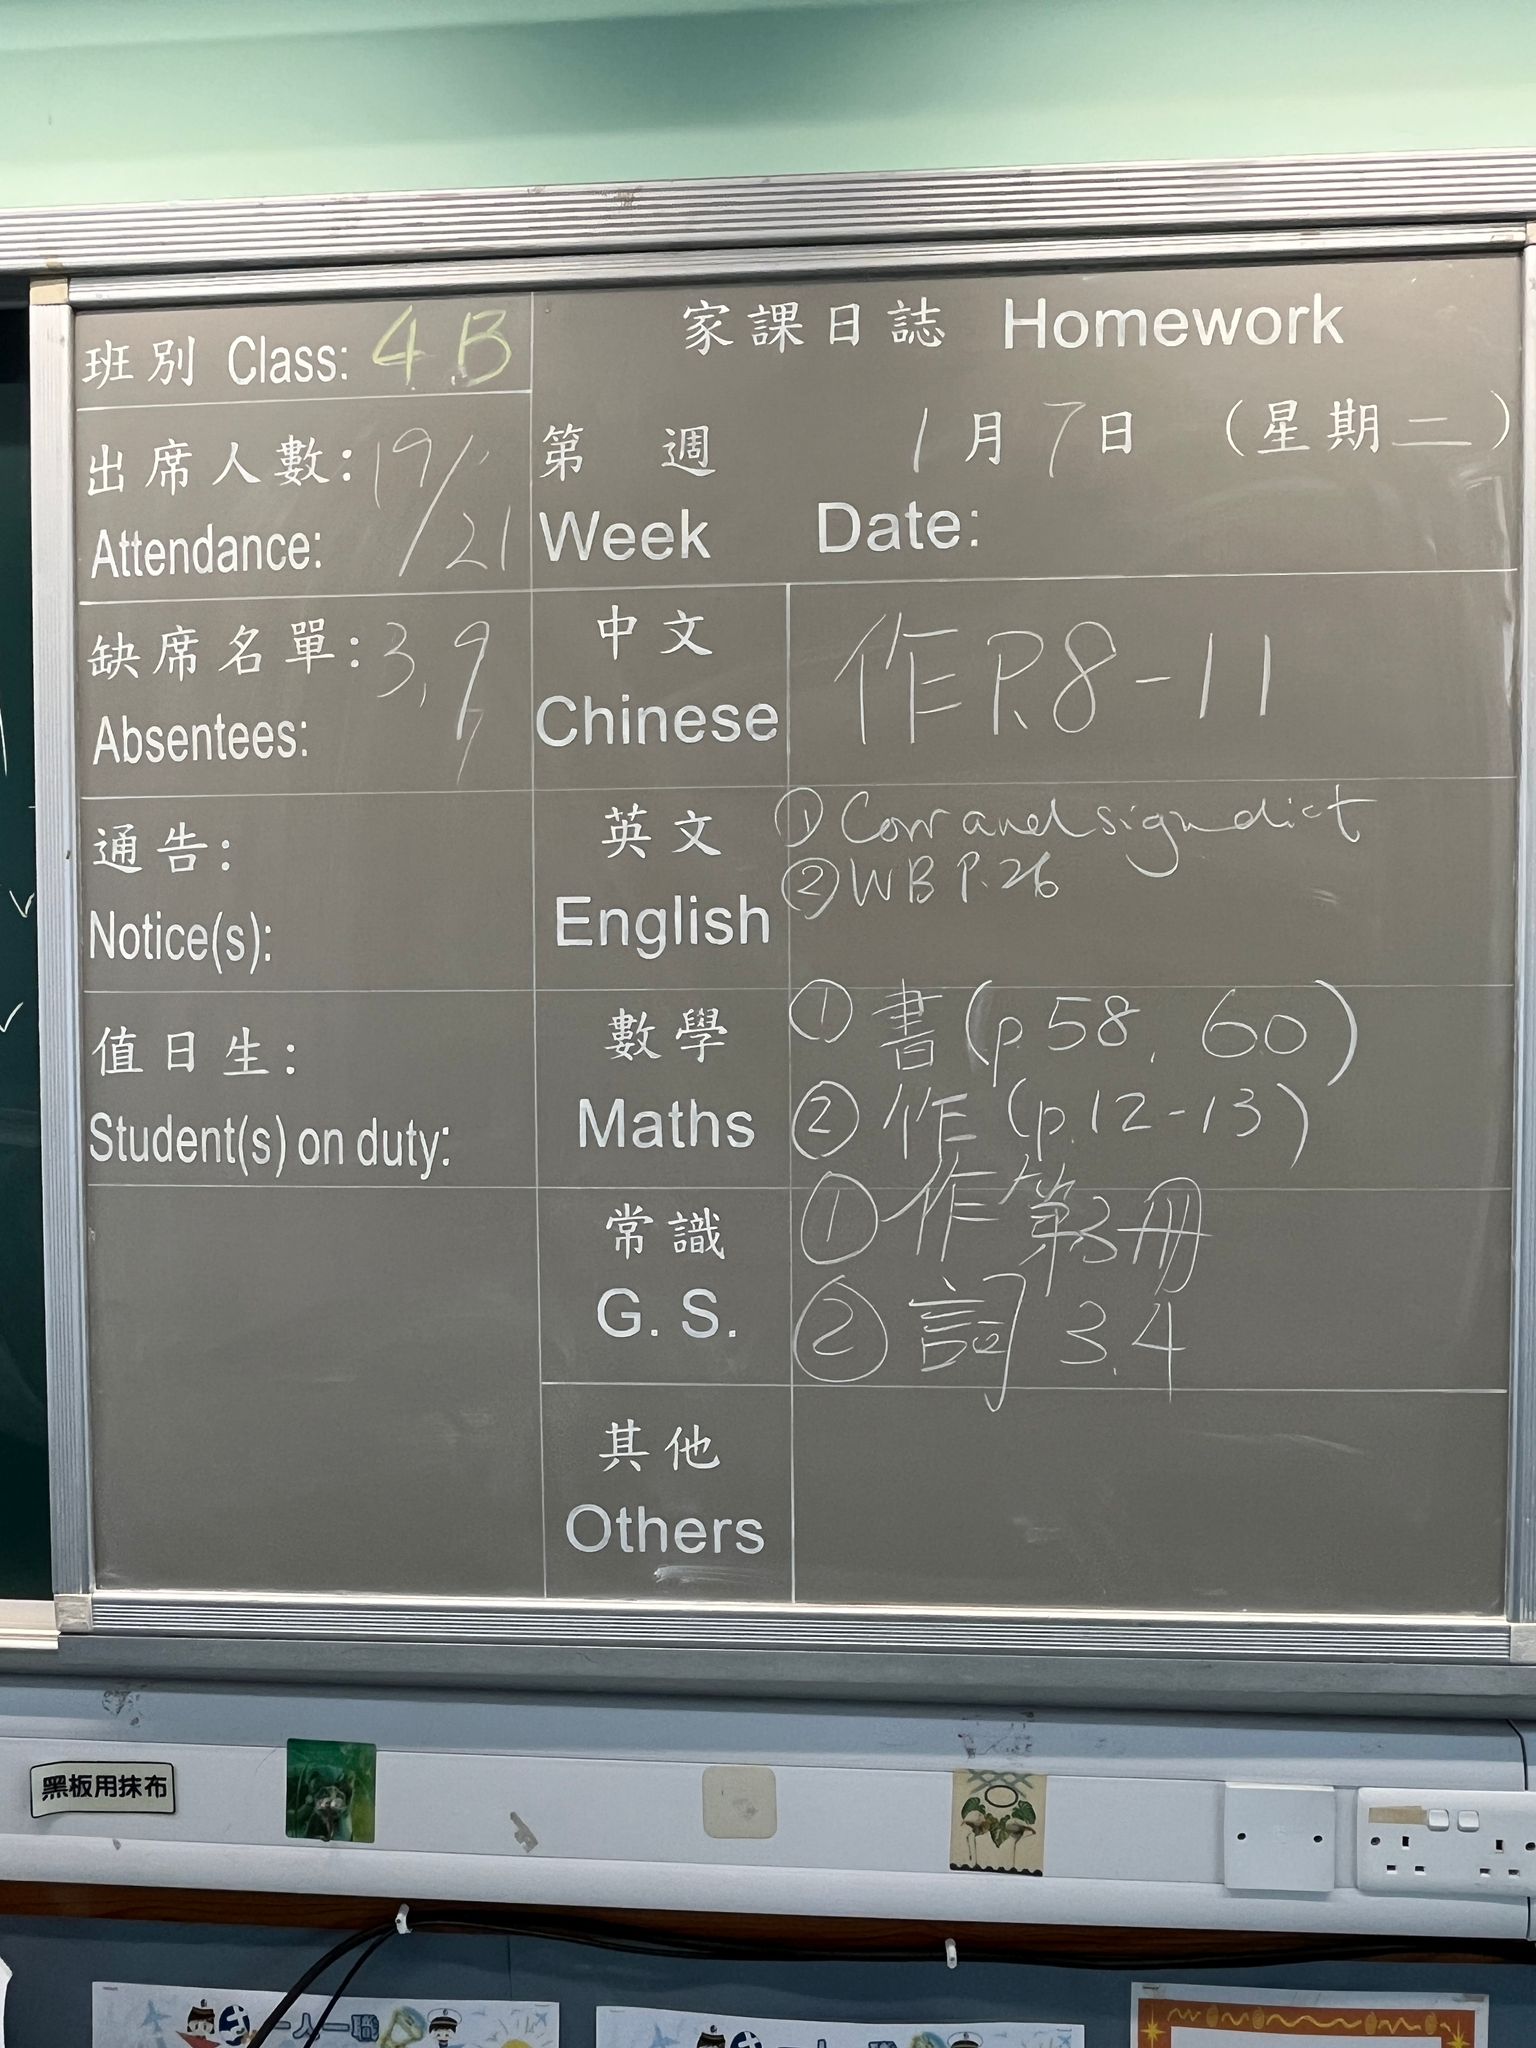 家課日誌 Homework
班別 Class: 4B
出席人數: 19/21
Attendance:
第 週 1月7日 (星期二)
Week Date:
缺席名單: 3, 9
Absentees:
中文 作 P.8-11
Chinese
通告:
Notice(s):
英文 ① Corr and sign dict
② WB P.26
English
值日生:
Student(s) on duty:
數學 ① 書 (p.58, 60)
Maths ② 作 (p.12-13)
常識 ① 作 第3冊
G. S. ② 詞 3.4
其他
Others
黑板用抹布
一人一職